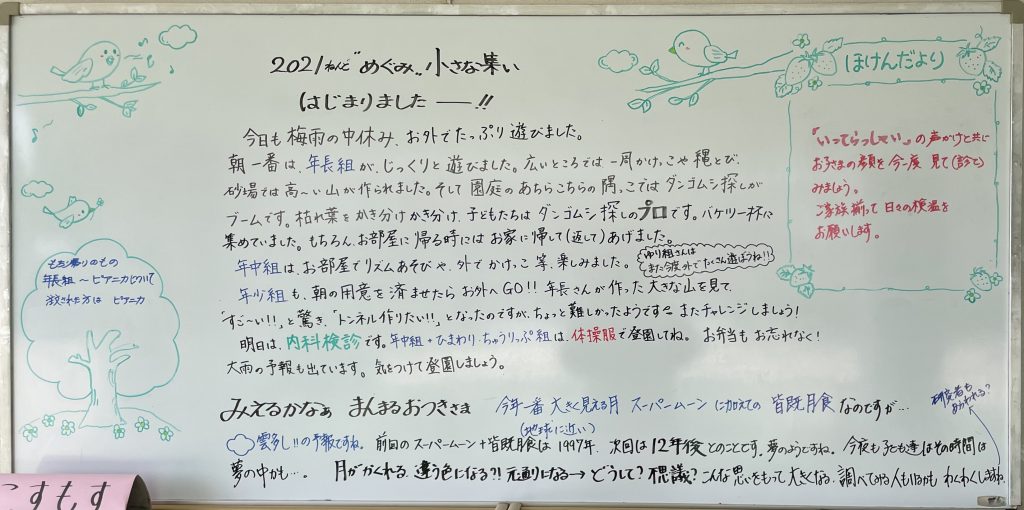 2021ねんど"めぐみ"小さな集い
はじまりました――!!
今日も梅雨の中休み、お外でたっぷり遊びました。
朝一番は、年長組が、じっくりと遊びました。広いところでは一周かけっこや縄とび、
砂場では高〜い山が作られました。そして園庭のあちらこちらの隅っこではダンゴムシ探しが
ブームです。枯れ葉をかき分けかき分け、子どもたちはダンゴムシ探しのプロです。バケツ一杯に
集めていました。もちろん、お部屋に帰る時にはお家に帰して(返して)あげました。
年中組は、お部屋でリズムあそびや、外でかけっこ等、楽しみました。
ゆり組さんは
また今度外でたくさん遊ぼうね!!
年少組も、朝の用意を済ませたらお外へGO!! 年長さんが作った大きな山を見て、
「すご〜い!!」と驚き、「トンネル作りたい!!」となったのですが、ちょっと難しかったようです。またチャレンジしましょう!
明日は、内科検診です。年中組+ひまわり・ちゅうりっぷ組は、体操服で登園してね。 お弁当もお忘れなく!
大雨の予報も出ています。気をつけて登園しましょう。
みえるかなぁ まんまるおつきさま 今年一番大きく見える月 スーパームーンに加えての皆既月食なのですが…
(地球に近い)
雲多し!!の予報ですね。前回のスーパームーン+皆既月食は1997年、次回は12年後とのことです。夢のようですね。今夜も子ども達はその時間は
夢の中かも…。 月がかくれる、違う色になる?! 元通りになる→どうして?不思議?こんな思いをもって大きくなる、調べてみる人もいるかも わくわくしますね。
研究者も
現われる?
ほけんだより
「いってらっしゃい」の声かけと共に
お子さまの顔を今一度見て(診て)
みましょう。
ご家族揃って日々の検温を
お願いします。
年長組〜ピアニカについて
ピアニカ
こすもす